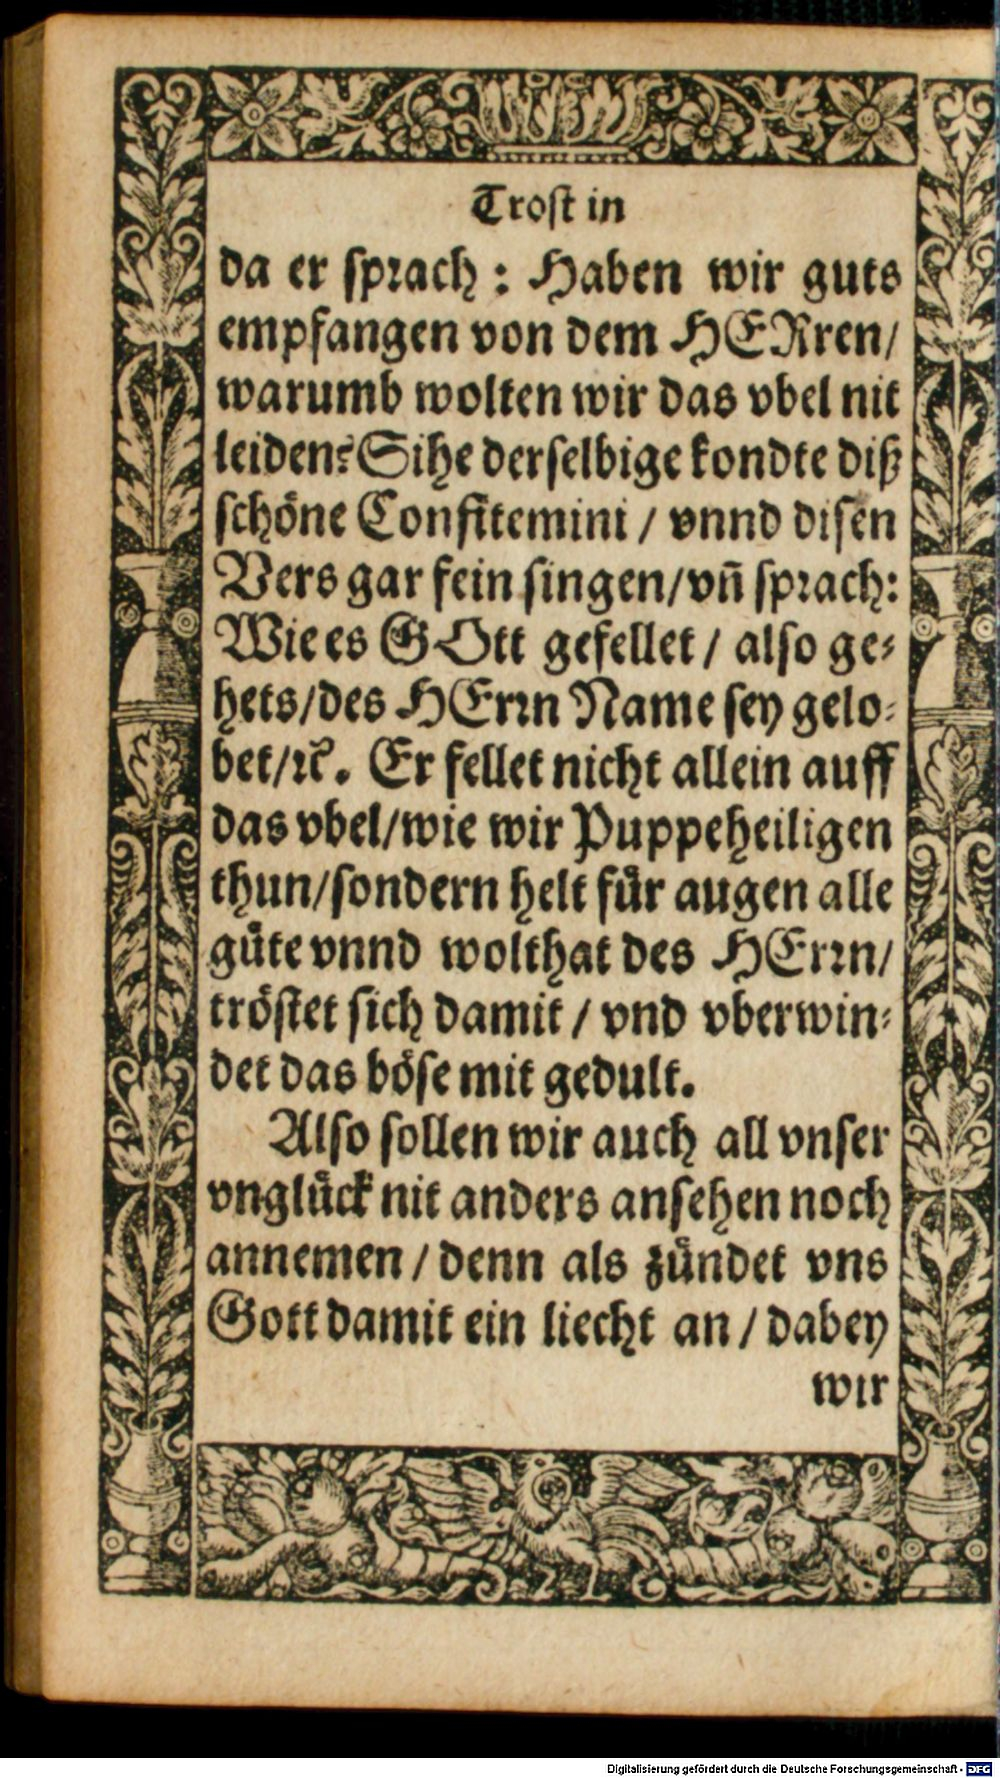 Trost in
da er sprach : Haben wir guts
empfangen von dem HERren/
warumb wolten wir das vbel nit
leiden? Sihe derselbige kondte diß
schöne Confitemini / vnnd disen
Vers gar fein singen/vn̄ sprach:
Wie es GOtt gefellet / also ge⸗
hets/des HErrn Name sey gelo⸗
bet/ꝛc̃. Er fellet nicht allein auff
das vbel/wie wir Puppeheiligen
thun/sondern helt fuͤr augen alle
guͤte vnnd wolthat des HErrn/
tröstet sich damit / vnd vberwin⸗
det das böse mit gedult.
Also sollen wir auch all vnser
vngluͤck nit anders ansehen noch
annemen / denn als zuͤndet vns
Gott damit ein liecht an / dabey
wir
Digitalisierung gefördert durch die Deutsche Forschungsgemeinschaft - DFG